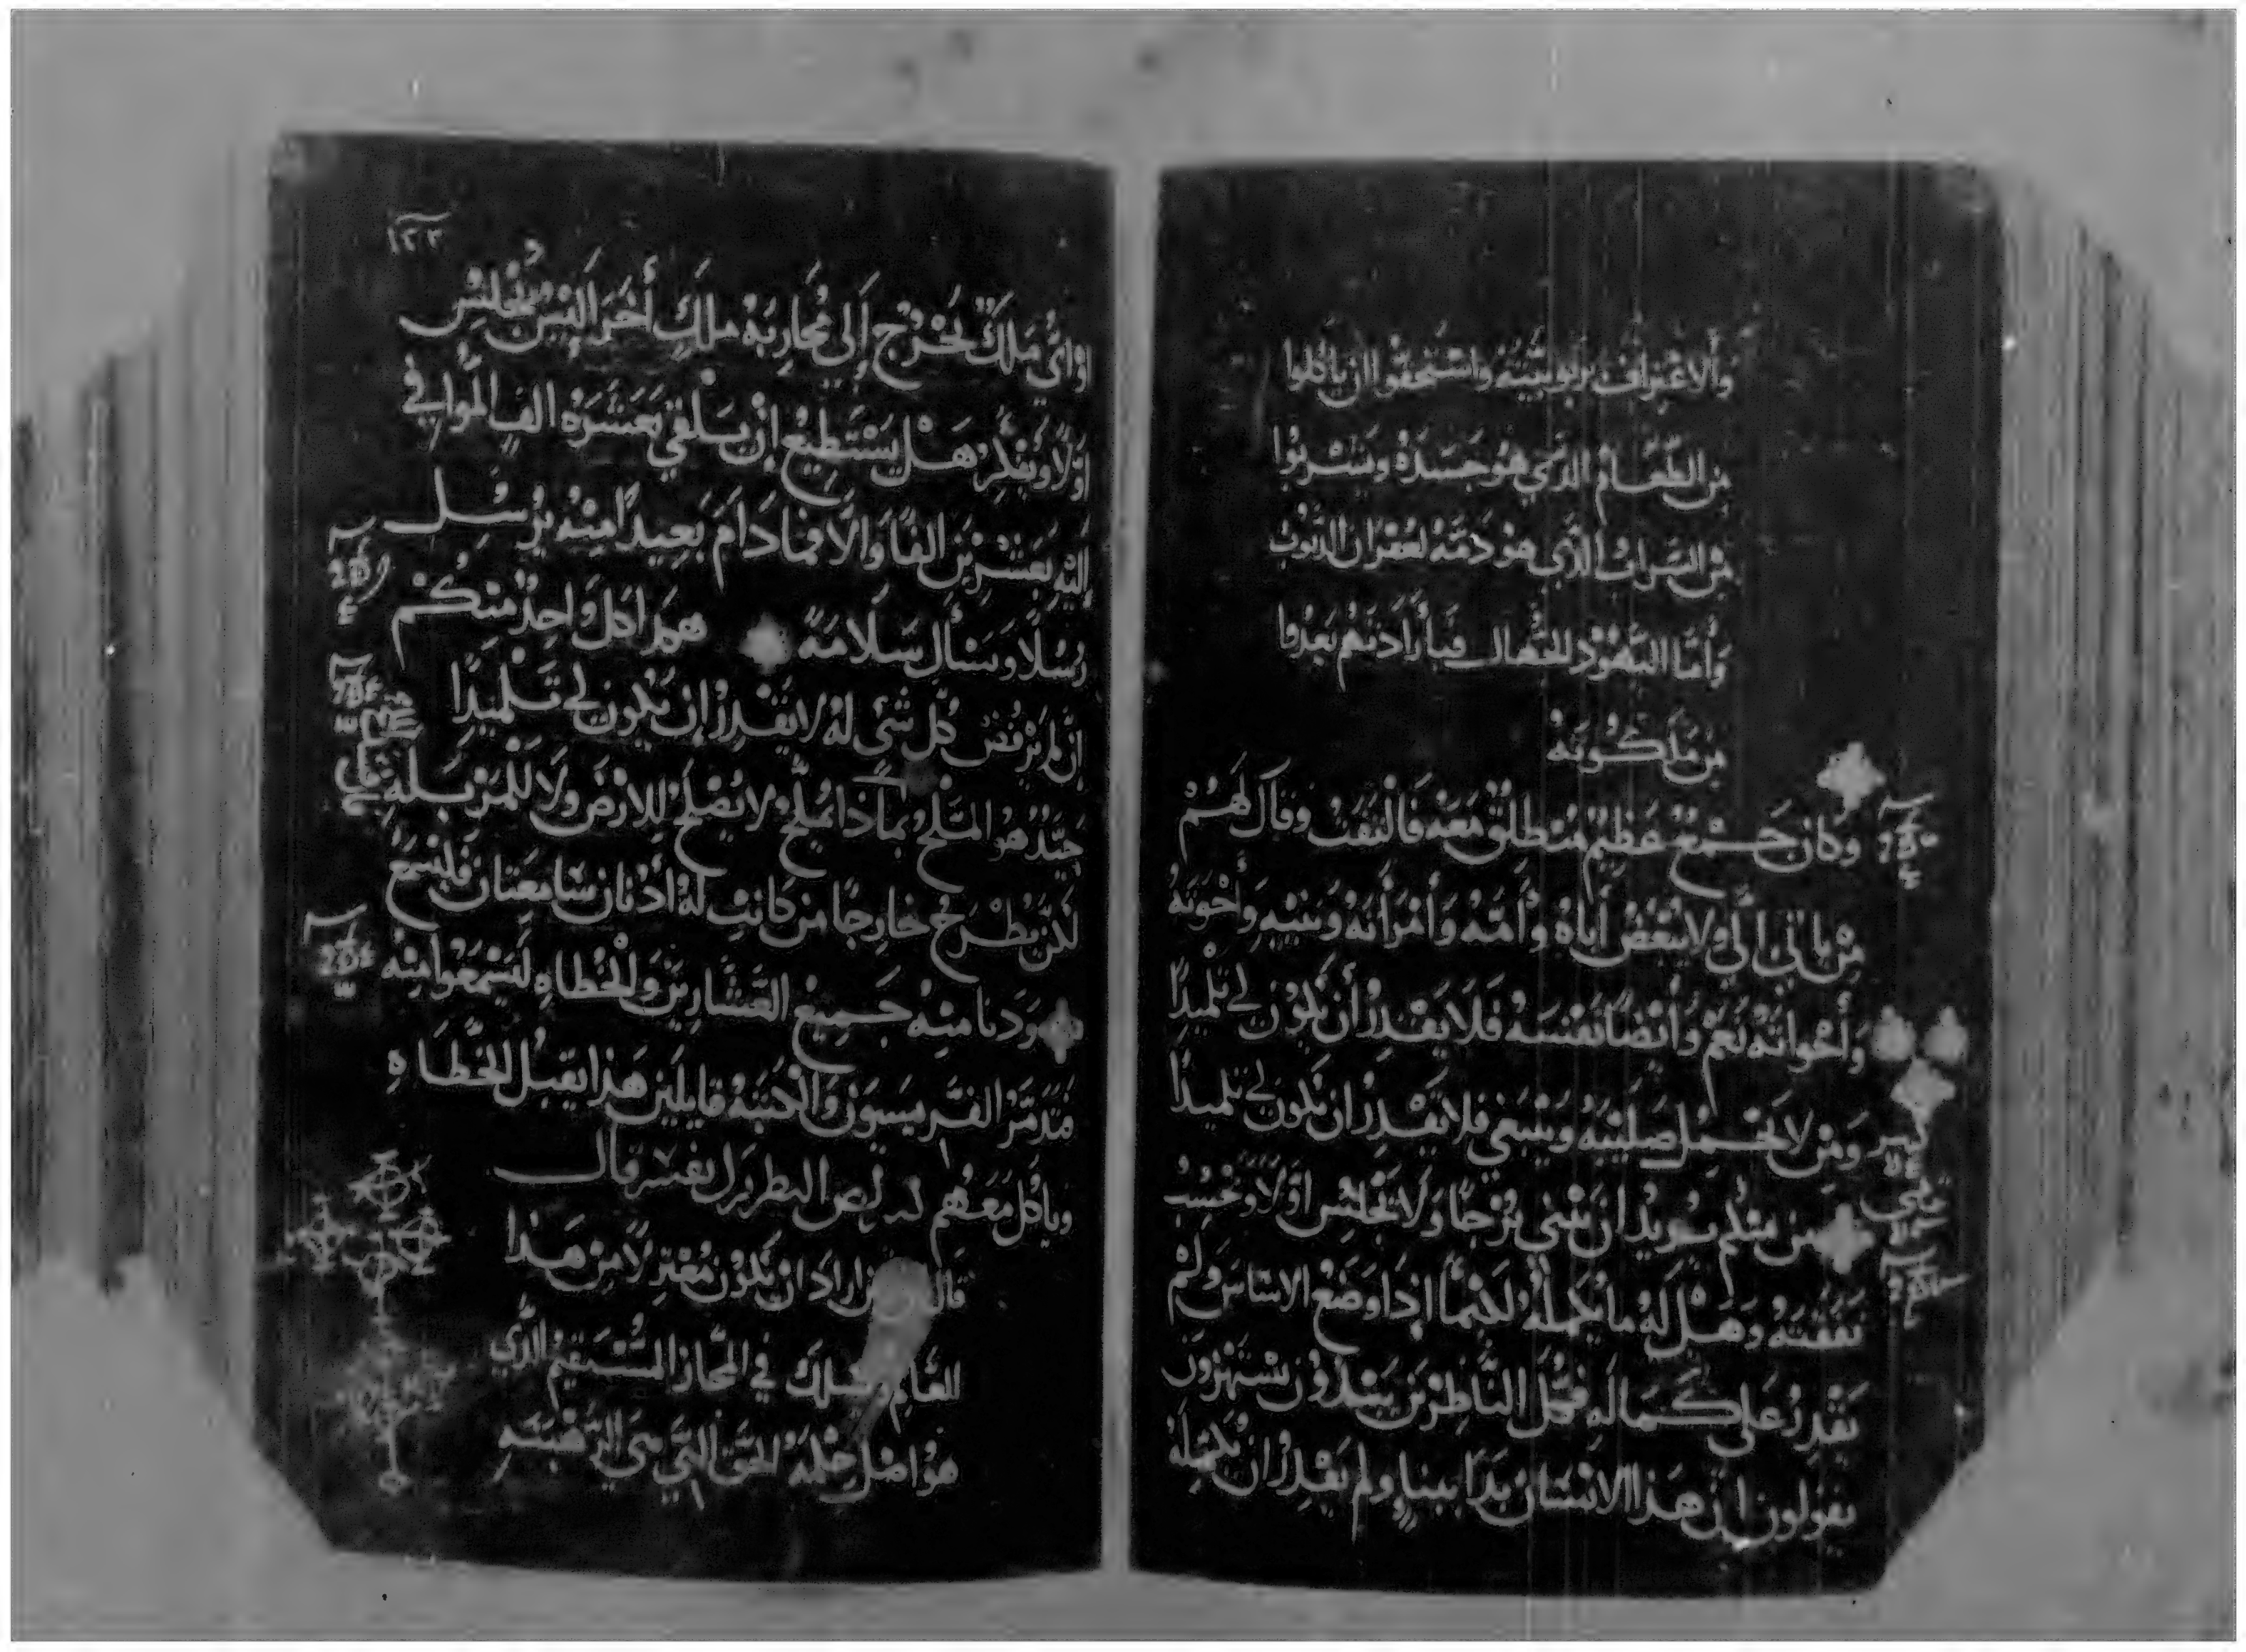 والاعتراف بربوبيته واستحقوا ان ياكلوا
من الطعام الذي هو جسده ويشربوا
من الشراب الذي هو دمه لغفران الذنوب
وأما اليهود الجهال فبأرادتهم بعدوا
من ملكوته
وكان جمع عظيم منطلق معه فالتفت وقال لهم
من ياتي الي ولا يبغض أباه وأمه وأمرأته وبنيه وأخوته
وأخواته نعم وأيضا نفسه فلا يقدر أن يكون لي تلميذا
ومن لا يحمل صليبه ويتبعني فلا يقدر ان يكون لي تلميذا
من منكم يريد ان يبني برجا ولا يجلس اولا ويحسب
نفقته وهل له ما يكمله لكيما اذا وضع الاساس ولم
يقدر على كماله فكل الناظرين يبتدون يستهزون
يقولون ان هذا الانسان بدا يبني ولم يقدر ان يكمله
١٢٣
او اي ملك يخرج إلى محاربة ملك أخر اليس يجلس
اولا ويفكر هل يستطيع ان يلقي بعشره الف الموافي
اليه بعشرين الفا والا فما دام بعيدا منه يرسل
رسلا ويسأل سلامة هكذا كل واحد منكم
ان لم يرفض كل شي له لا يقدر ان يكون لي تلميذا
جيد هو الملح بماذا يملح لا يصلح للارض ولا للمزبلة
لكن يطرح خارجا من كانت له أذنان سامعتان فليسمع
ودنا منه جميع العشارين والخطاه ليسمعوا منه
فتذمر الفريسيون والكتبه قايلين هذا يقبل الخطاه
وياكل معهم البطريرك يفسر قال
قال من اراد ان يكون معتزلا من هذا
العالم ويسلك في المجاز المستقيم الذي
هو اصل حكمة الحق التي هي الرهبنه